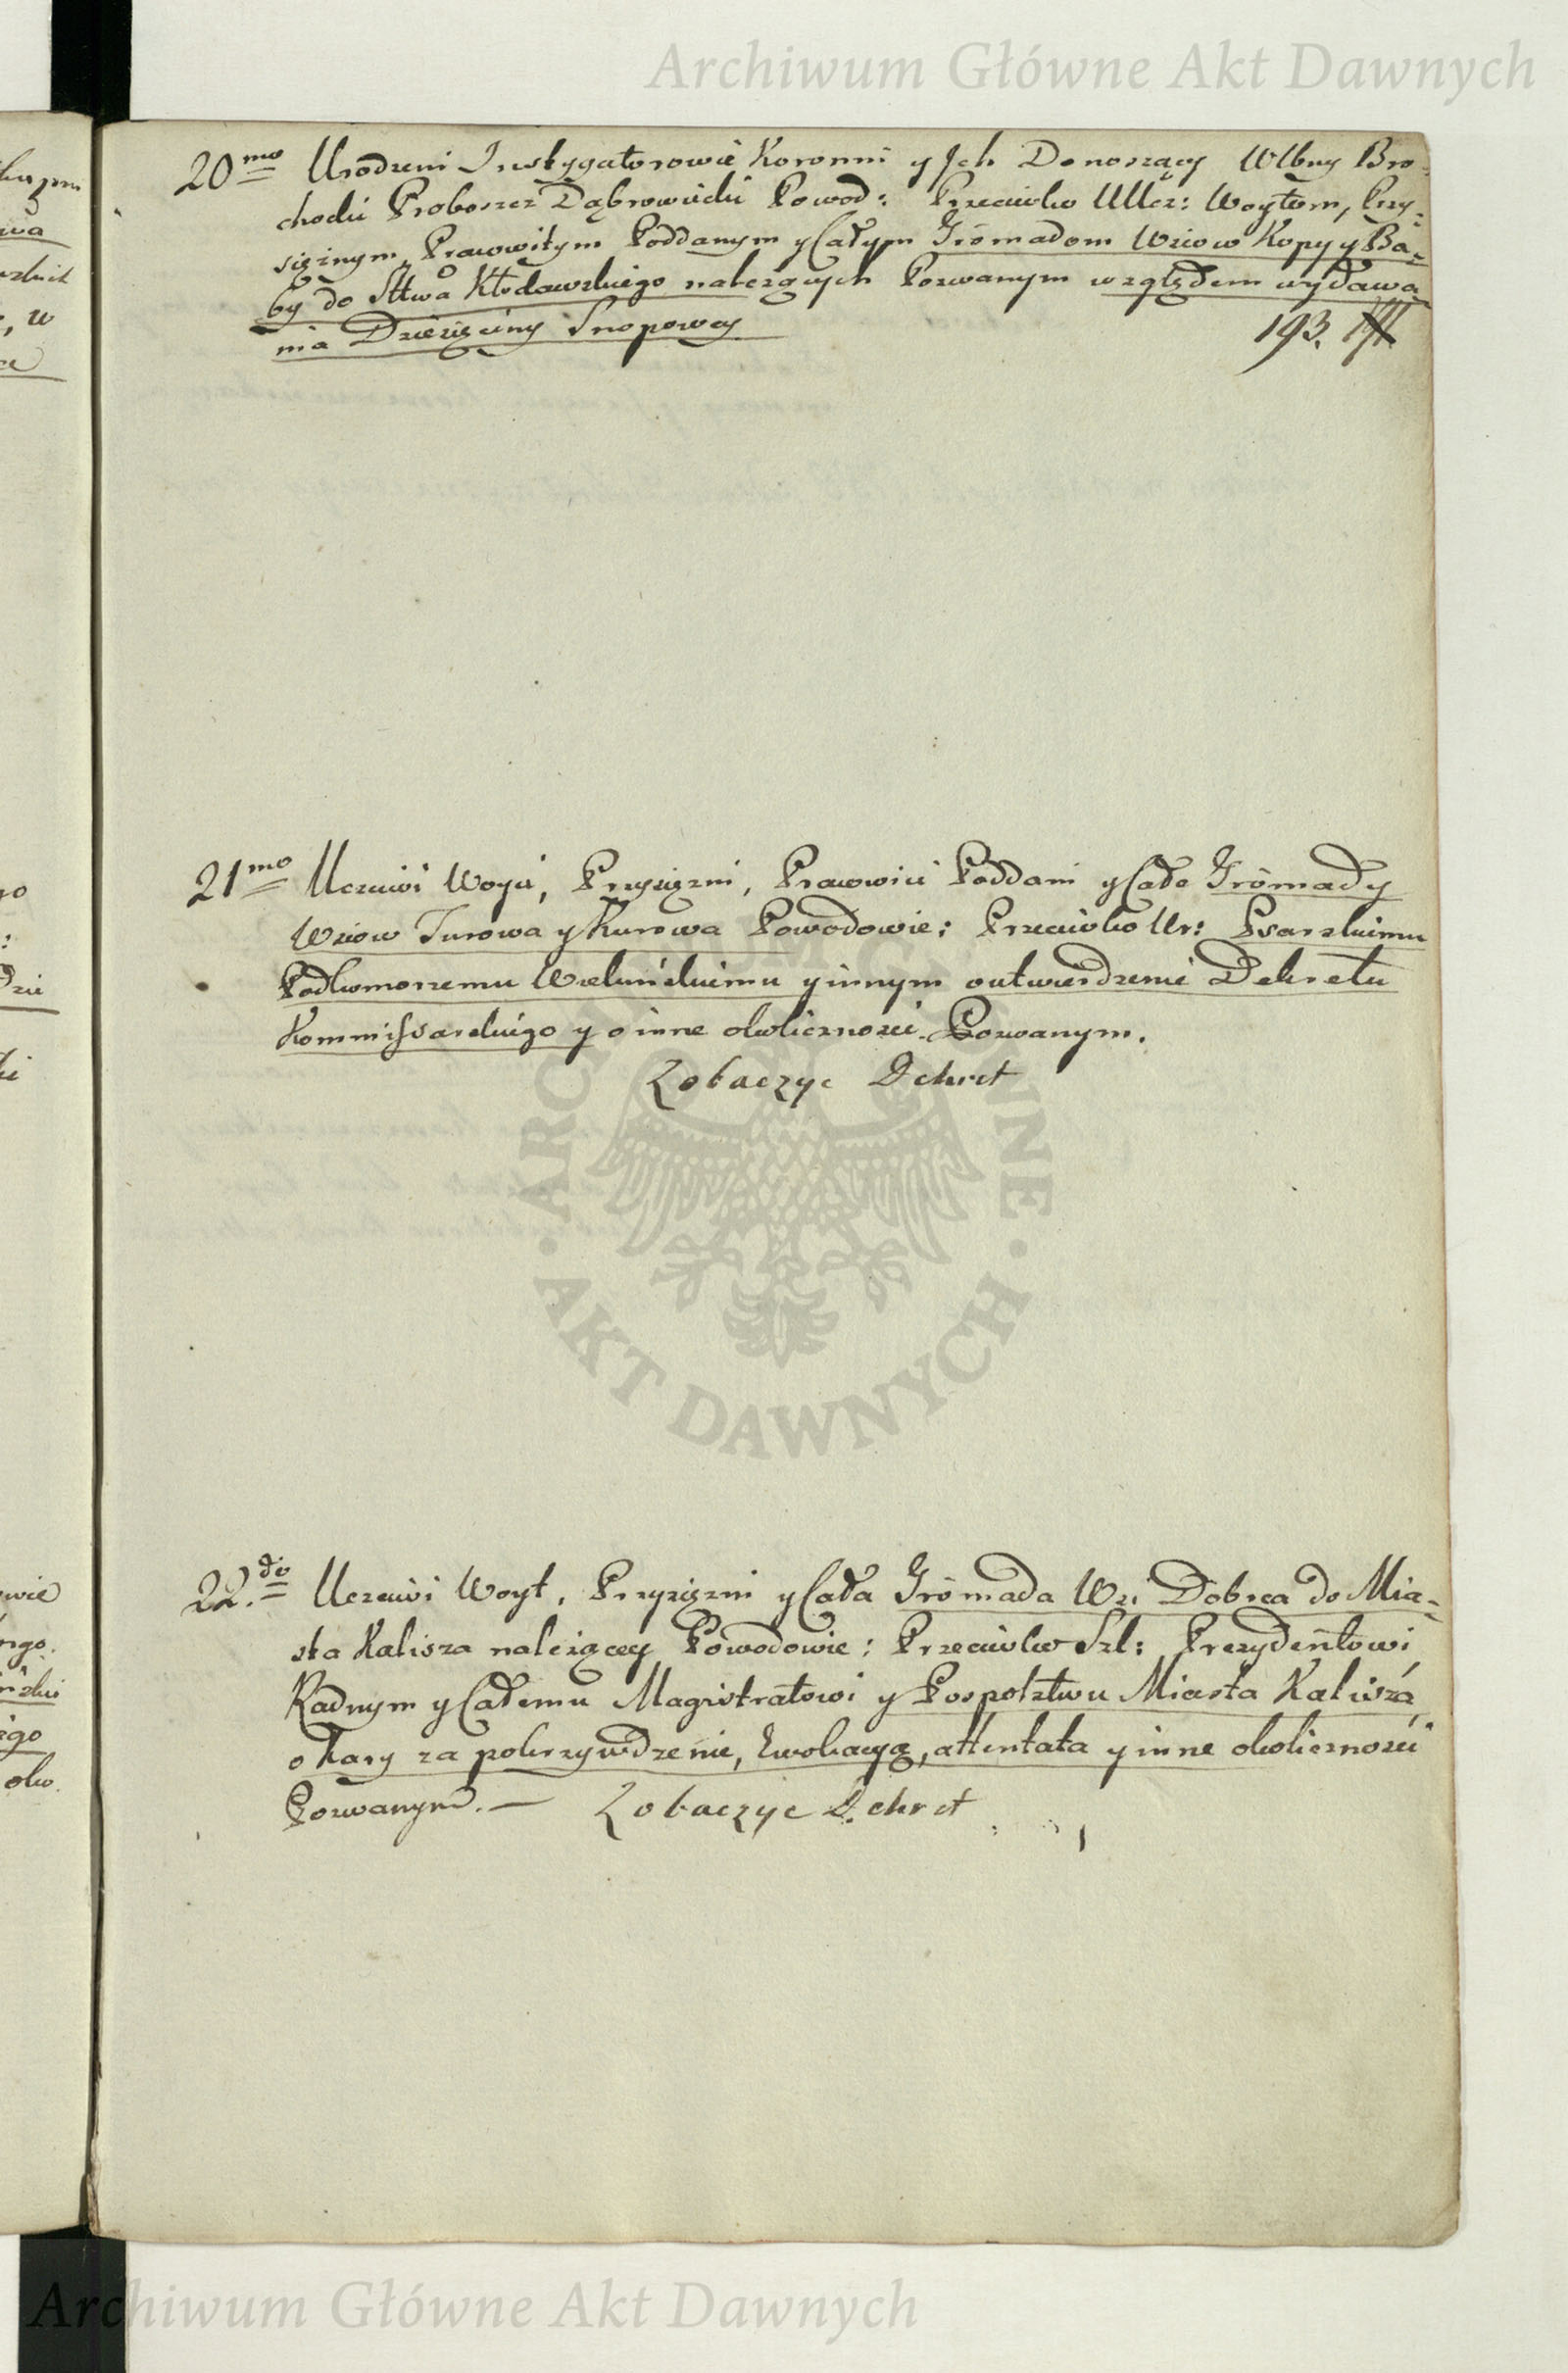 Archiwum Główne Akt Dawnych
20mo Urodzeni Instygatorowie Koronni y Ich Donoszący Wlbny Bro-
chocki Proboszcz Dąbrowicki Powod: Przeciwko UUcz: Woytom, Przy-
siężnym, Prawowitym Poddanym y Całym Gromadom Wsiow Kopy y Ba-
by do Sttwa Kłodawskiego należących Pozwanym względem wydawa
nia Dziesięciny Snopowey
193.
21mo Uczciwi Woyci, Przysiężni, Pracowici Poddani y Całe Gromady
Wsiow Turowa y Kurowa Powodowie: Przeciwko Ur: Psarskiemu
Podkomorzemu Wieluńskiemu y innym o utwierdzenie Dekretu
Kommissarskiego y o inne okoliczności Pozwanym.
Zobaczyc Dekret
22do Uczciwi Woyt, Przysiężni y Cała Gromada Wsi Dobrca do Mia-
sta Kalisza należącey Powodowie: Przeciwko Szl: Prezydentowi
Radnym y Całemu Magistratowi y Pospolstwu Miasta Kalisza,
o kary za pokrzywdzenie, Ewokacyą, attentata y inne okoliczności
Pozwanym. — Zobaczyc Dekret
ARCHIWUM GŁÓWNE · AKT DAWNYCH ·
Archiwum Główne Akt Dawnych